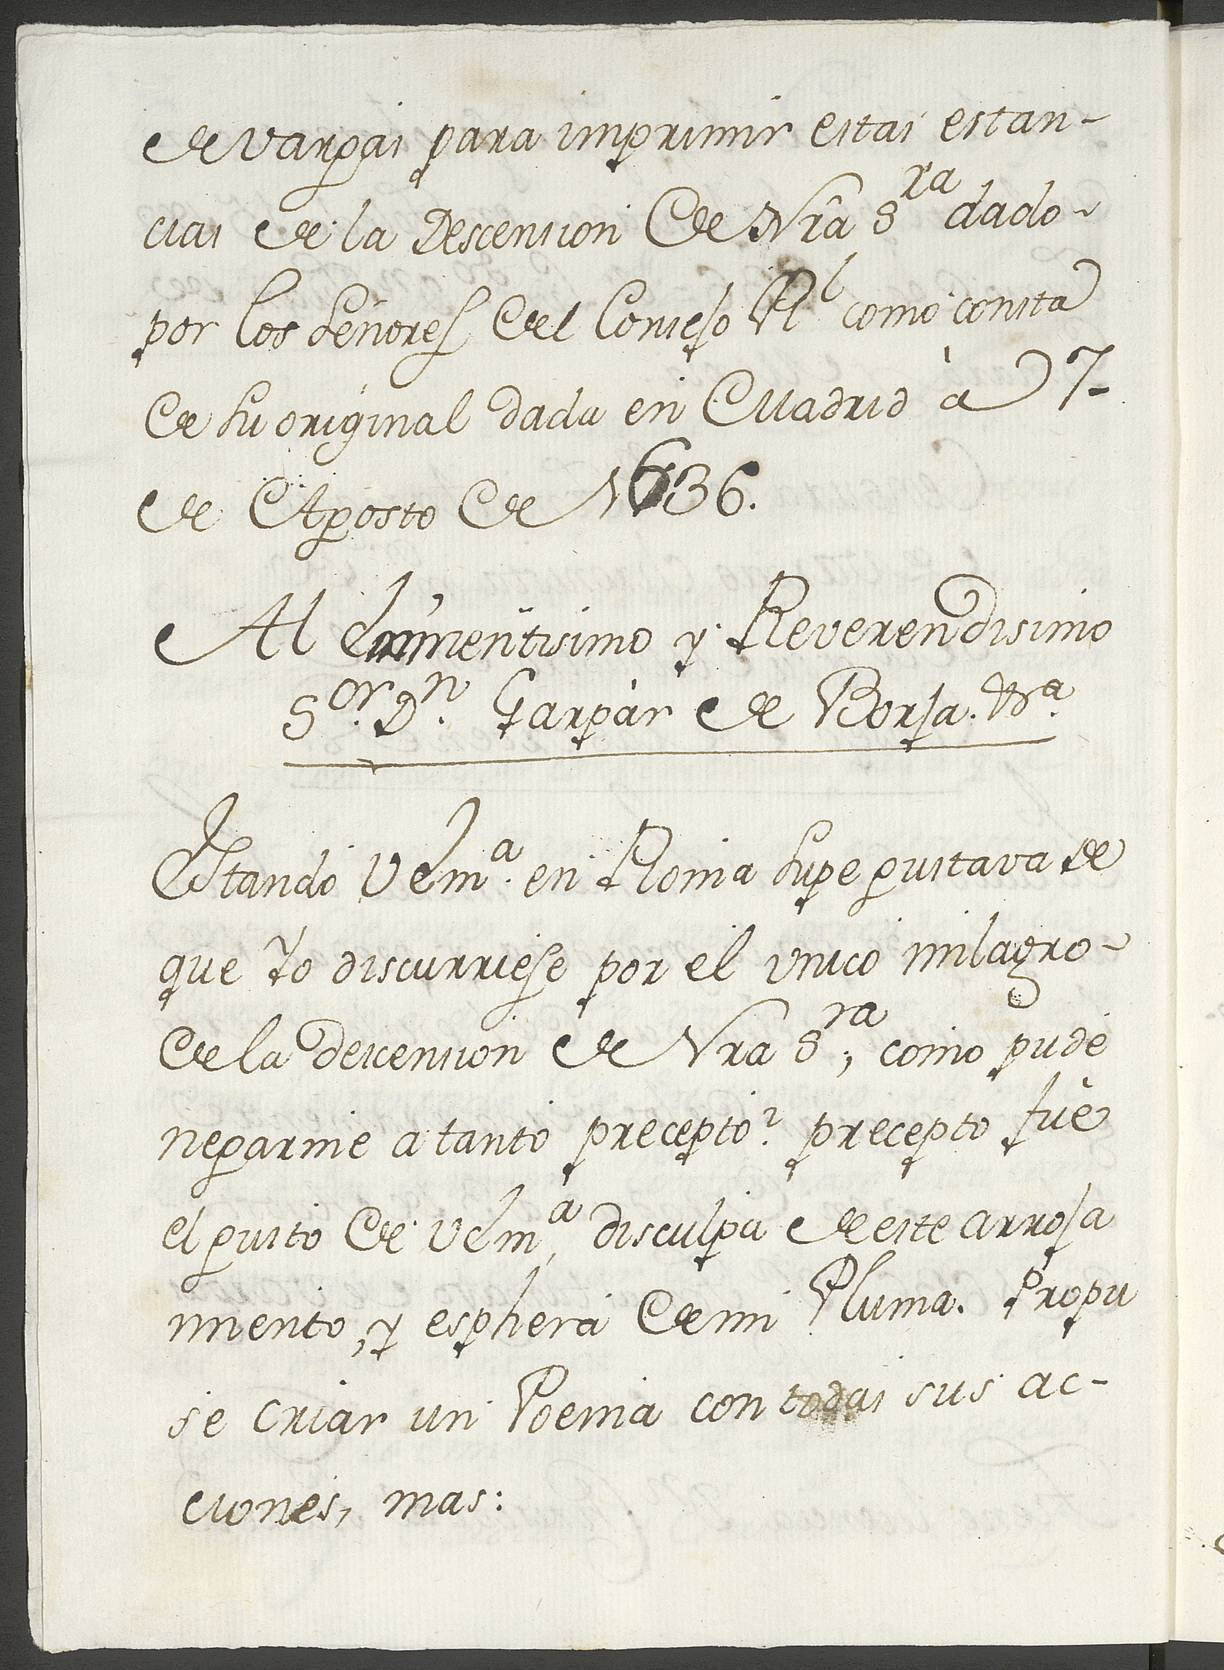 de Vargas para imprimir estas estan-
cias de la Descension de Nrâ S.ra dado-
por los Señores del Consejo Rl como consta
de su original dada en Madrid à 7-
de Agosto de 1636.
Al Eminentisimo y Reverendisimo
Sor. Dn. Gaspar de Borja.
Estando V Em.a en Roma supe gustava de
que Yo discurriese por el vnico milagro-
de la descension de Nra Sra, como pude
negarme a tanto precepto? precepto fuê
el gusto de V Em.a, disculpa de este arroja
miento, y esphera de mi Pluma. Propu
se criar un Poema con todas sus ac-
ciones, mas: